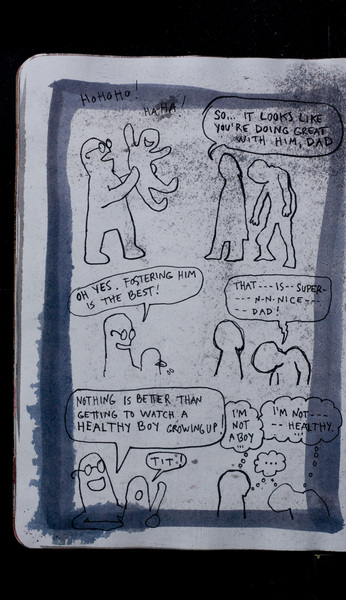 HOHOHO!
HAHA!
SO... IT LOOKS LIKE
YOU'RE DOING GREAT
WITH HIM, DAD
OH YES. FOSTERING HIM
IS THE BEST!
THAT---IS--SUPER-
---N-N-NICE---
--DAD!
NOTHING IS BETTER THAN
GETTING TO WATCH A
HEALTHY BOY GROWING UP!
TIT!
I'M
NOT
A BOY
...
I'M NOT---
--HEALTHY.
...